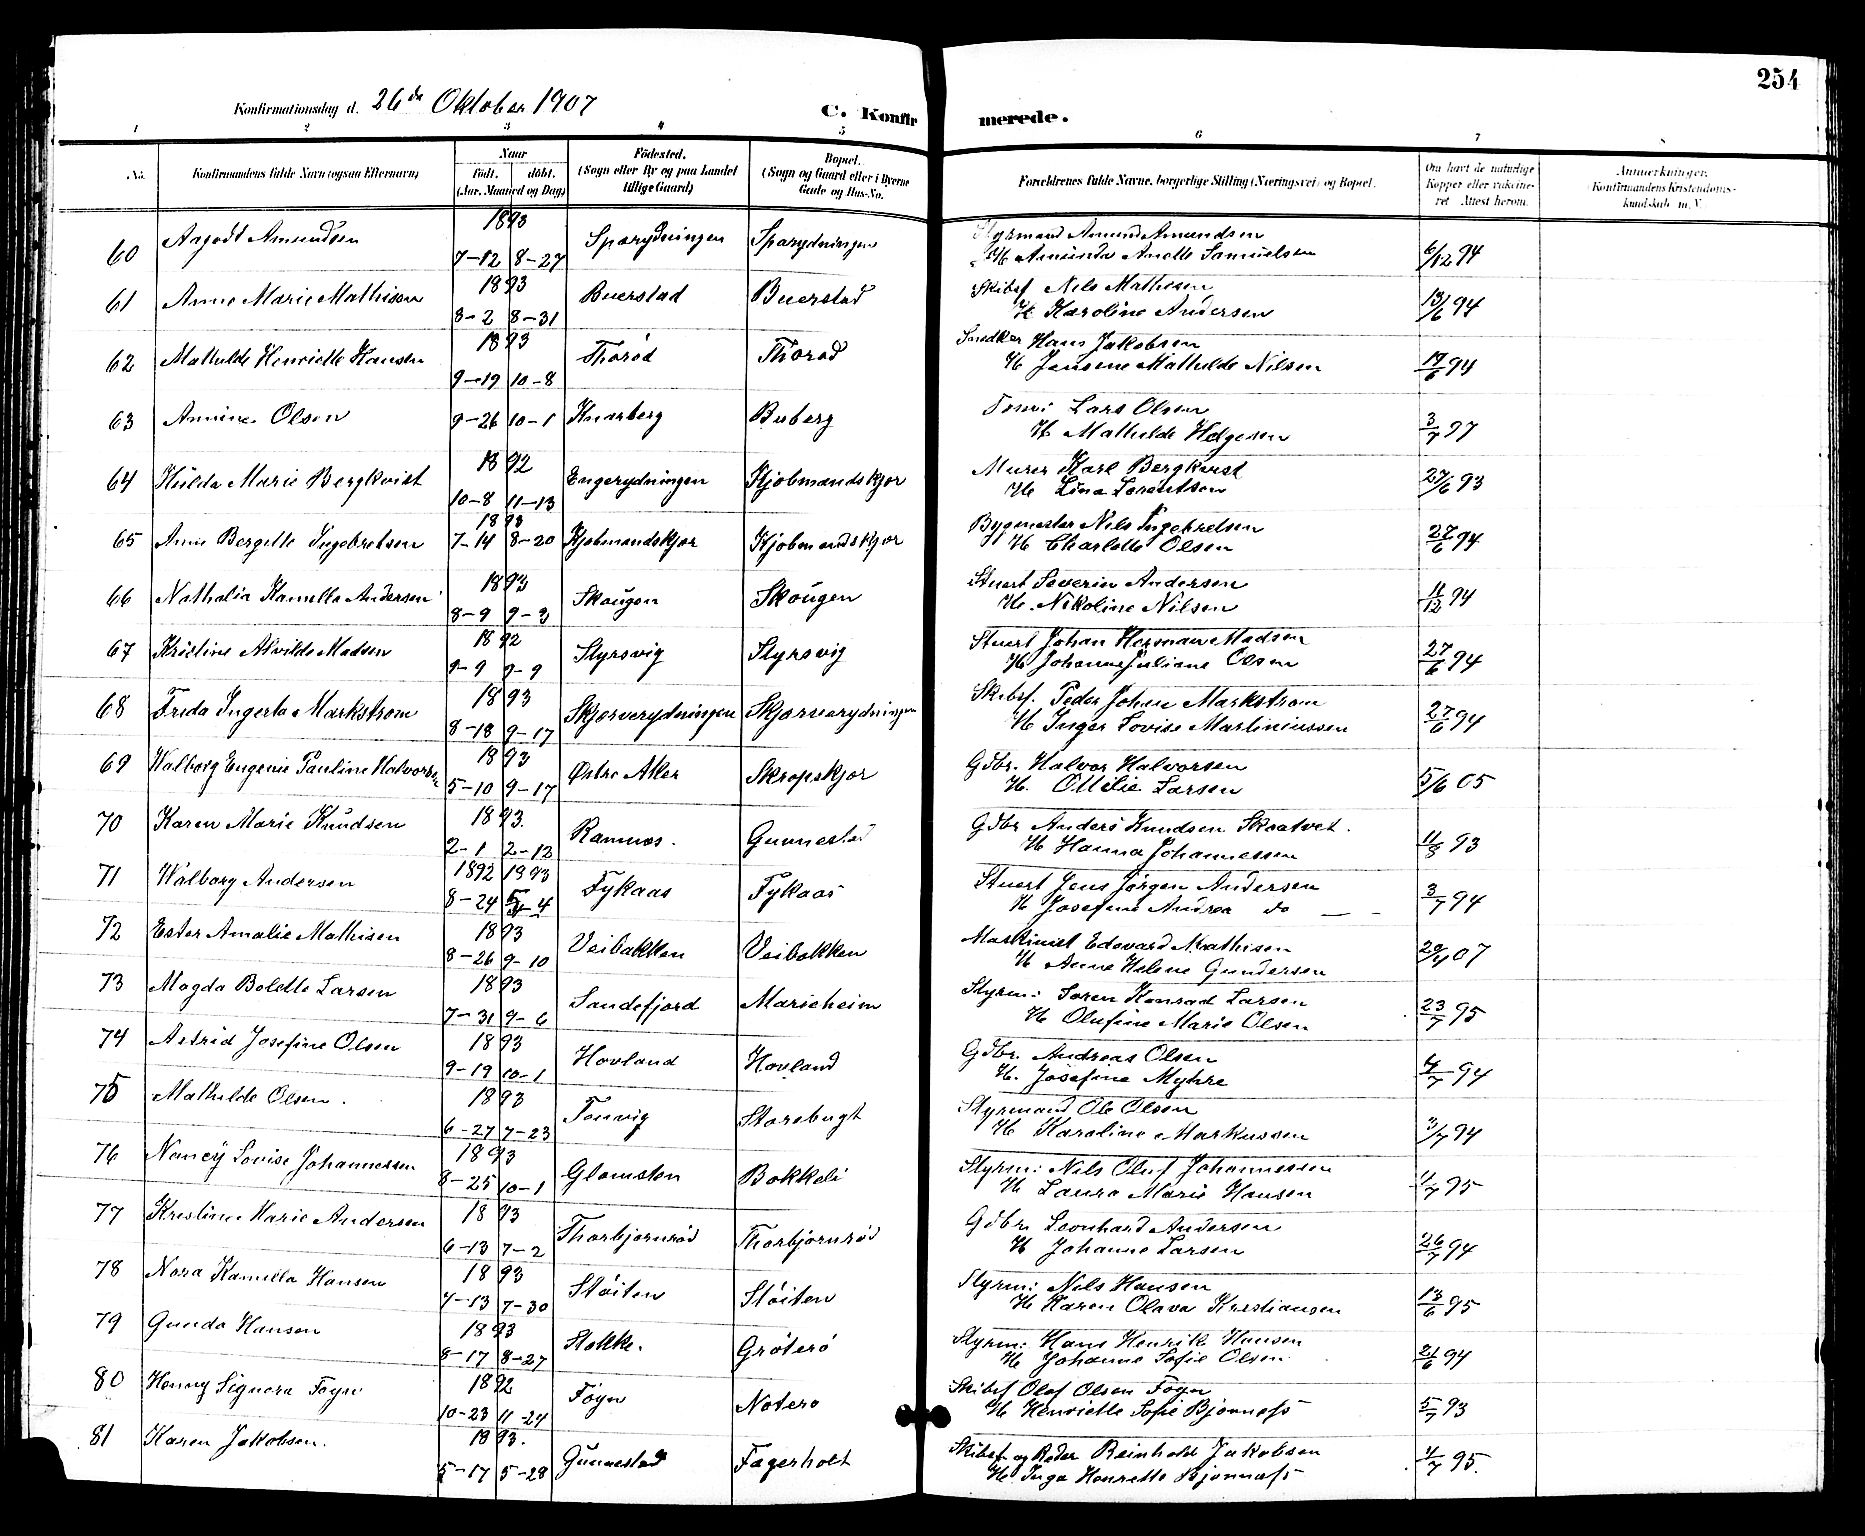 254
Konfirmationsdag d. 26de Oktober 1907 C. Konfirmerede.
1 2 3 4 5 6 7
No. Konfirmandens fulde Navn (ogsaa Efternavn) Naar født. døbt. (Aar, Maaned og Dag) Födested. (Sogn eller By og paa Landet tillige Gaard) Bopæl. (Sogn og Gaard eller i Byerne Gade og Hus-No. Forældrenes fulde Navne, borgerlige Stilling (Næringsvei) og Bopæl. Om havt de naturlige Kopper eller vaccineret. Attest herom. Anmærkninger. (Konfirmandens Kristendomskundskab m. V.
60 Aagodt Amundsen 1893 7-12 8-27 Sparydningen Sparydningen Styrmand Amund Amundsen
H Amunda Anette Samuelsen 6/12 94
61 Anne Marie Mathisen 1893 8-2 8-31 Buerstad Buerstad Skibsf Nils Mathesen
H Karoline Andersen 13/6 94
62 Mathilde Henriette Hansen 1893 9-19 10-8 Thorød Thorød Snedker Hans Jakobsen
H Jensene Mathilde Nilsen 17/6 94
63 Annine Olsen 9-26 10-1 Knarberg Buberg Lars Olsen
H Mathilde Helgesen 3/7 97
64 Hulda Marie Bergkvist 1892 10-8 11-13 Engerydningen Kjøbmandskjær Murer Karl Bergkvist
H Lina Lorentsen 27/6 93
65 Anne Bergitte Ingebretsen 1893 7-14 8-20 Kjøbmandskjær Kjøbmandskjær Bygmester Nils Ingebretsen
H Charlotte Olsen 27/6 94
66 Nathalia Kamilla Andersen 1893 8-9 9-3 Skougen Skougen Stuert Severin Andersen
H. Nikoline Nilsen 11/12 94
67 Kristine Alvilde Madsen 1892 9-9 9-9 Styrsvig Styrsvig Stuert Johan Herman Madsen
H Johanne Juliane Olsen 27/6 94
68 Frida Ingerta Markstrøm 1893 8-18 9-17 Skjærverydningen Skjærverydningen Skibsf. Peder Johan Markstrøm
H Inger Lovise Martiniussen 27/6 94
69 Walborg Eugenie Pauline Halvorsen 1893 5-10 9-17 Østre Aker Skropskjær Gdbr. Halvor Halvorsen
H. Ottilie Larsen 5/6 05
70 Karen Marie Knudsen 1893. 2-1 2-12 Ramnæs. Gunnestad Gdbr Anders Knudsen Skaatvet.
H Hanna Johannessen 11/8 93
71 Walborg Andersen 1892 1893 8-24 4 Fykaas Fykaas Stuert Jens Jørgen Andersen
H Josefine Andrea do 3/7 94
72 Ester Amalie Mathisen 1893 8-26 9-10 Veibakken Veibakken Maskinist Edovard Mathisen
H Anne Helene Gundersen 29/4 07
73 Magda Bolette Larsen 1893 7-31 9-6 Sandefjord Marieheim Styrm: Soren Konrad Larsen
H Olufine Marie Olsen 23/7 95
74 Astrid Josefine Olsen 1893 9-19 10-1 Hovland Hovland Gdbr. Andreas Olsen
H. Josefine Myhre 4/7 94
75 Mathilde Olsen. 1893 6-27 7-23 Tenvig Storebugt Styrmand Ole Olsen
H Karoline Markussen 3/7 94
76 Nancy Lovise Johannessen 1893 8-25 10-1 Glomsten Bakkeli Styrm: Nils Oluf Johannessen
H Laura Marie Hansen 1/7 95
77 Kristine Marie Andersen 1893 6-13 7-2 Thorbjørnrød Thorbjørnrød Gdbr. Leonhard Andersen
H Johanne Larsen 26/7 94
78 Nora Kamilla Hansen 1893 4-13 7-30 Støiten Støiten Styrm: Nils Hansen
H Karen Olava Kristiansen 13/6 95
79 Gunda Hansen 1893 8-17 8-27 Stokke. Grøterø Styrm: Hans Henrik Hansen
H Johanne Sofie Olsen 21/6 94
80 Henny Signora Føyn 1892 10-23 11-24 Føyn Nøterø Skibsf Olaf Olsen Føyn
H Henriette Sofie Bjønness 5/7 93
81 Karen Jakobsen. 1893. 5-17 5-28 Gunnestad Fagerholt Skibsf og Reder Reinholdt Jakobsen
H Inga Henriette Bjønness 1/7 95.